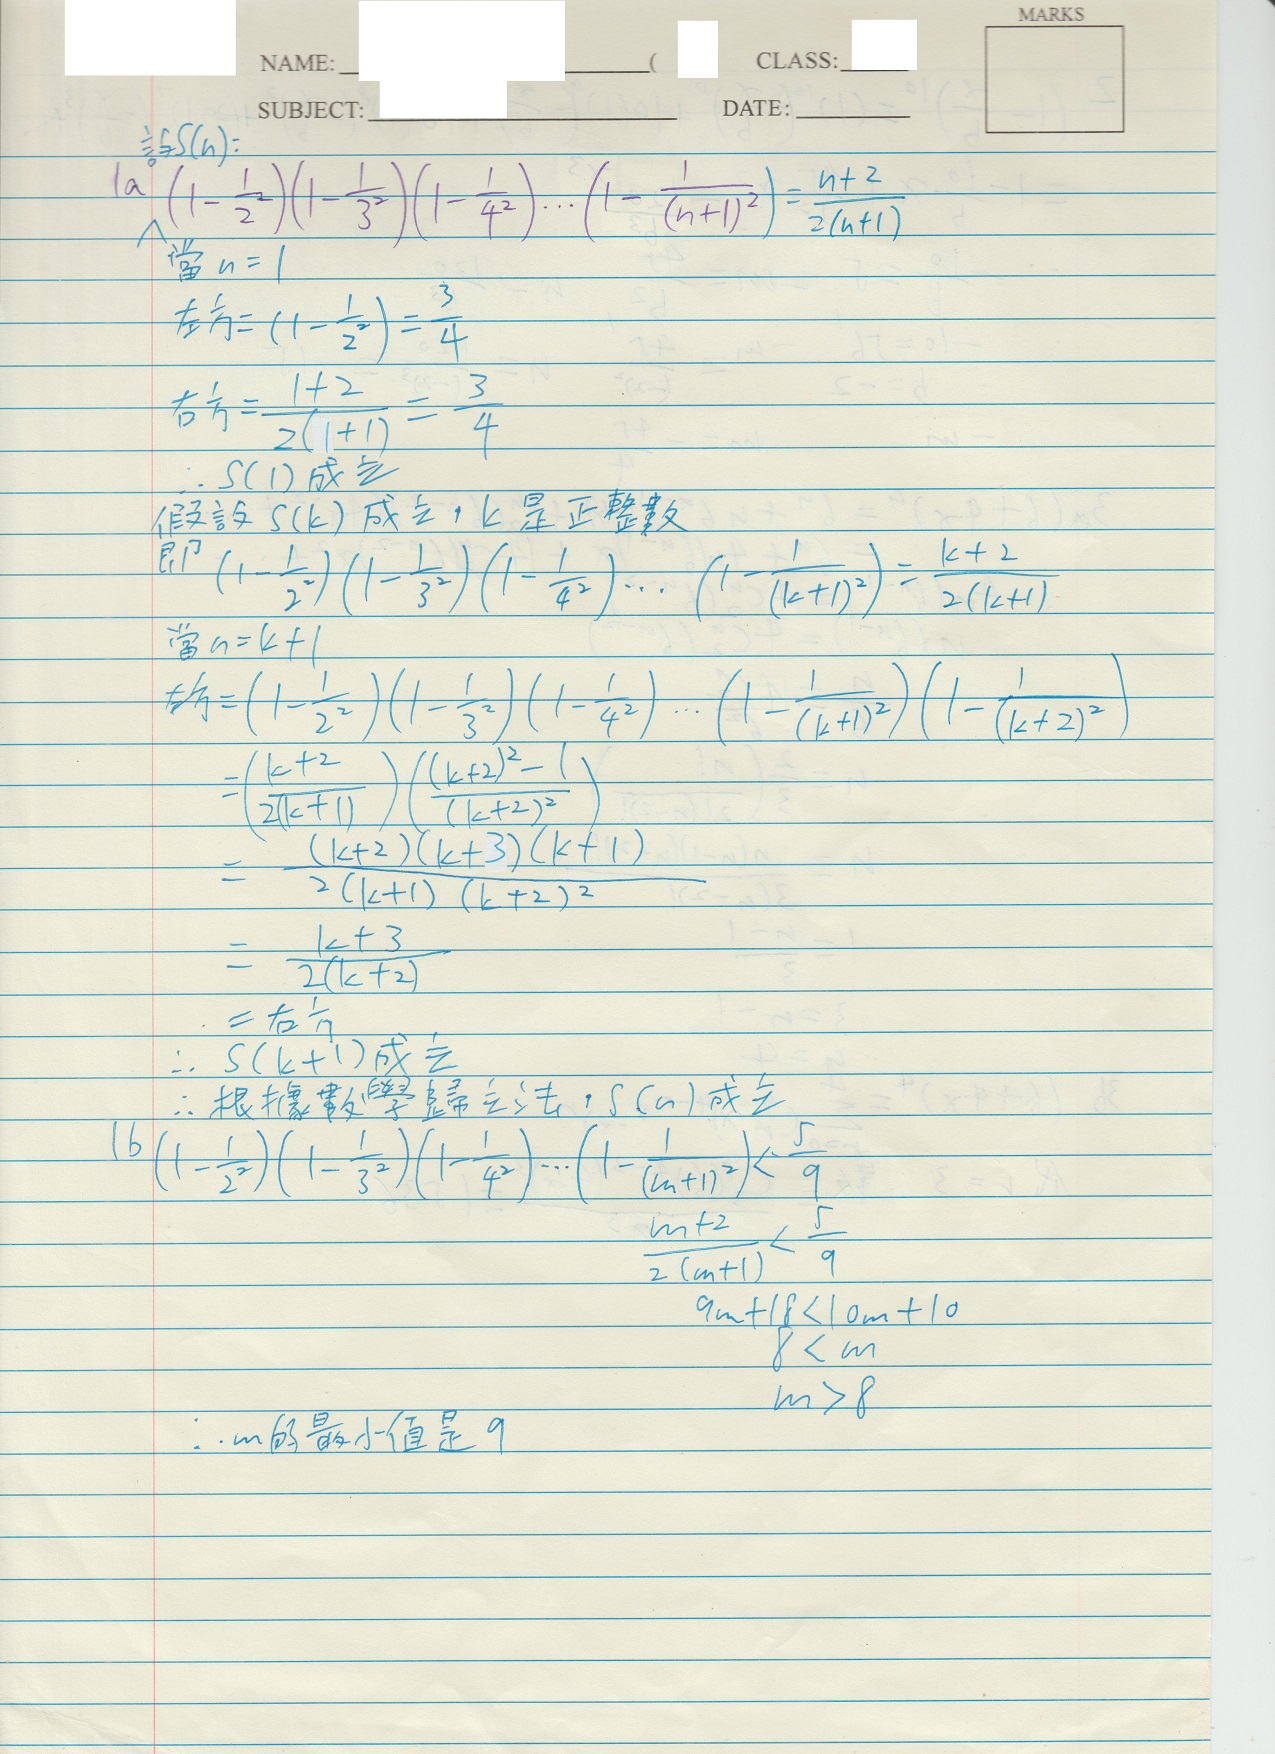 MARKS
NAME: ( CLASS:
SUBJECT: DATE:
設S(n):
1a (1-1/2²)(1-1/3²)(1-1/4²)...(1-1/(n+1)²)=n+2/2(n+1)
當n=1
左方=(1-1/2²)=3/4
右方=1+2/2(1+1)=3/4
∴S(1)成立
假設S(k)成立,k是正整數
即(1-1/2²)(1-1/3²)(1-1/4²)...(1-1/(k+1)²)=k+2/2(k+1)
當n=k+1
左方=(1-1/2²)(1-1/3²)(1-1/4²)...(1-1/(k+1)²)(1-1/(k+2)²)
=(k+2/2(k+1))((k+2)²-1/(k+2)²)
=(k+2)(k+3)(k+1)/2(k+1)(k+2)²
=k+3/2(k+2)
=右方
∴S(k+1)成立
∴根據數學歸立法,S(n)成立
1b (1-1/2²)(1-1/3²)(1-1/4²)...(1-1/(m+1)²)<5/9
m+2/2(m+1)<5/9
9m+18<10m+10
8<m
m>8
∴m的最小值是9